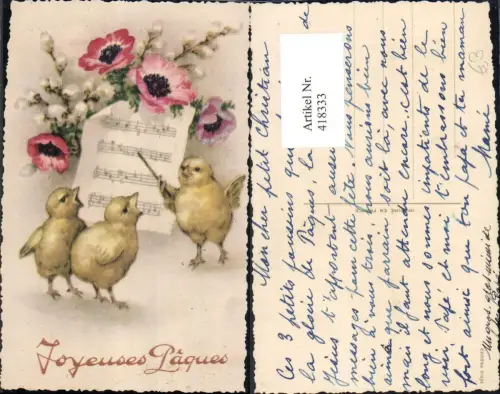 Joyeuses Pâques
Artikel Nr.
418333
Mon cher petit Chrétien
Ces 3 petits poussins qui
la gloire de Pâques, la
de
fleurs t'apportent aussi
messages pour cette fête. Nous penserons
bien à vous trois, nous aurions bien
aimé que parrain soit là, avec nous
mais il faut attendre encore. C'est bien
long et nous sommes impatients de le
voir. Papé et moi t'embrassons bien
fort ainsi que ton papa et ta maman
Mamé